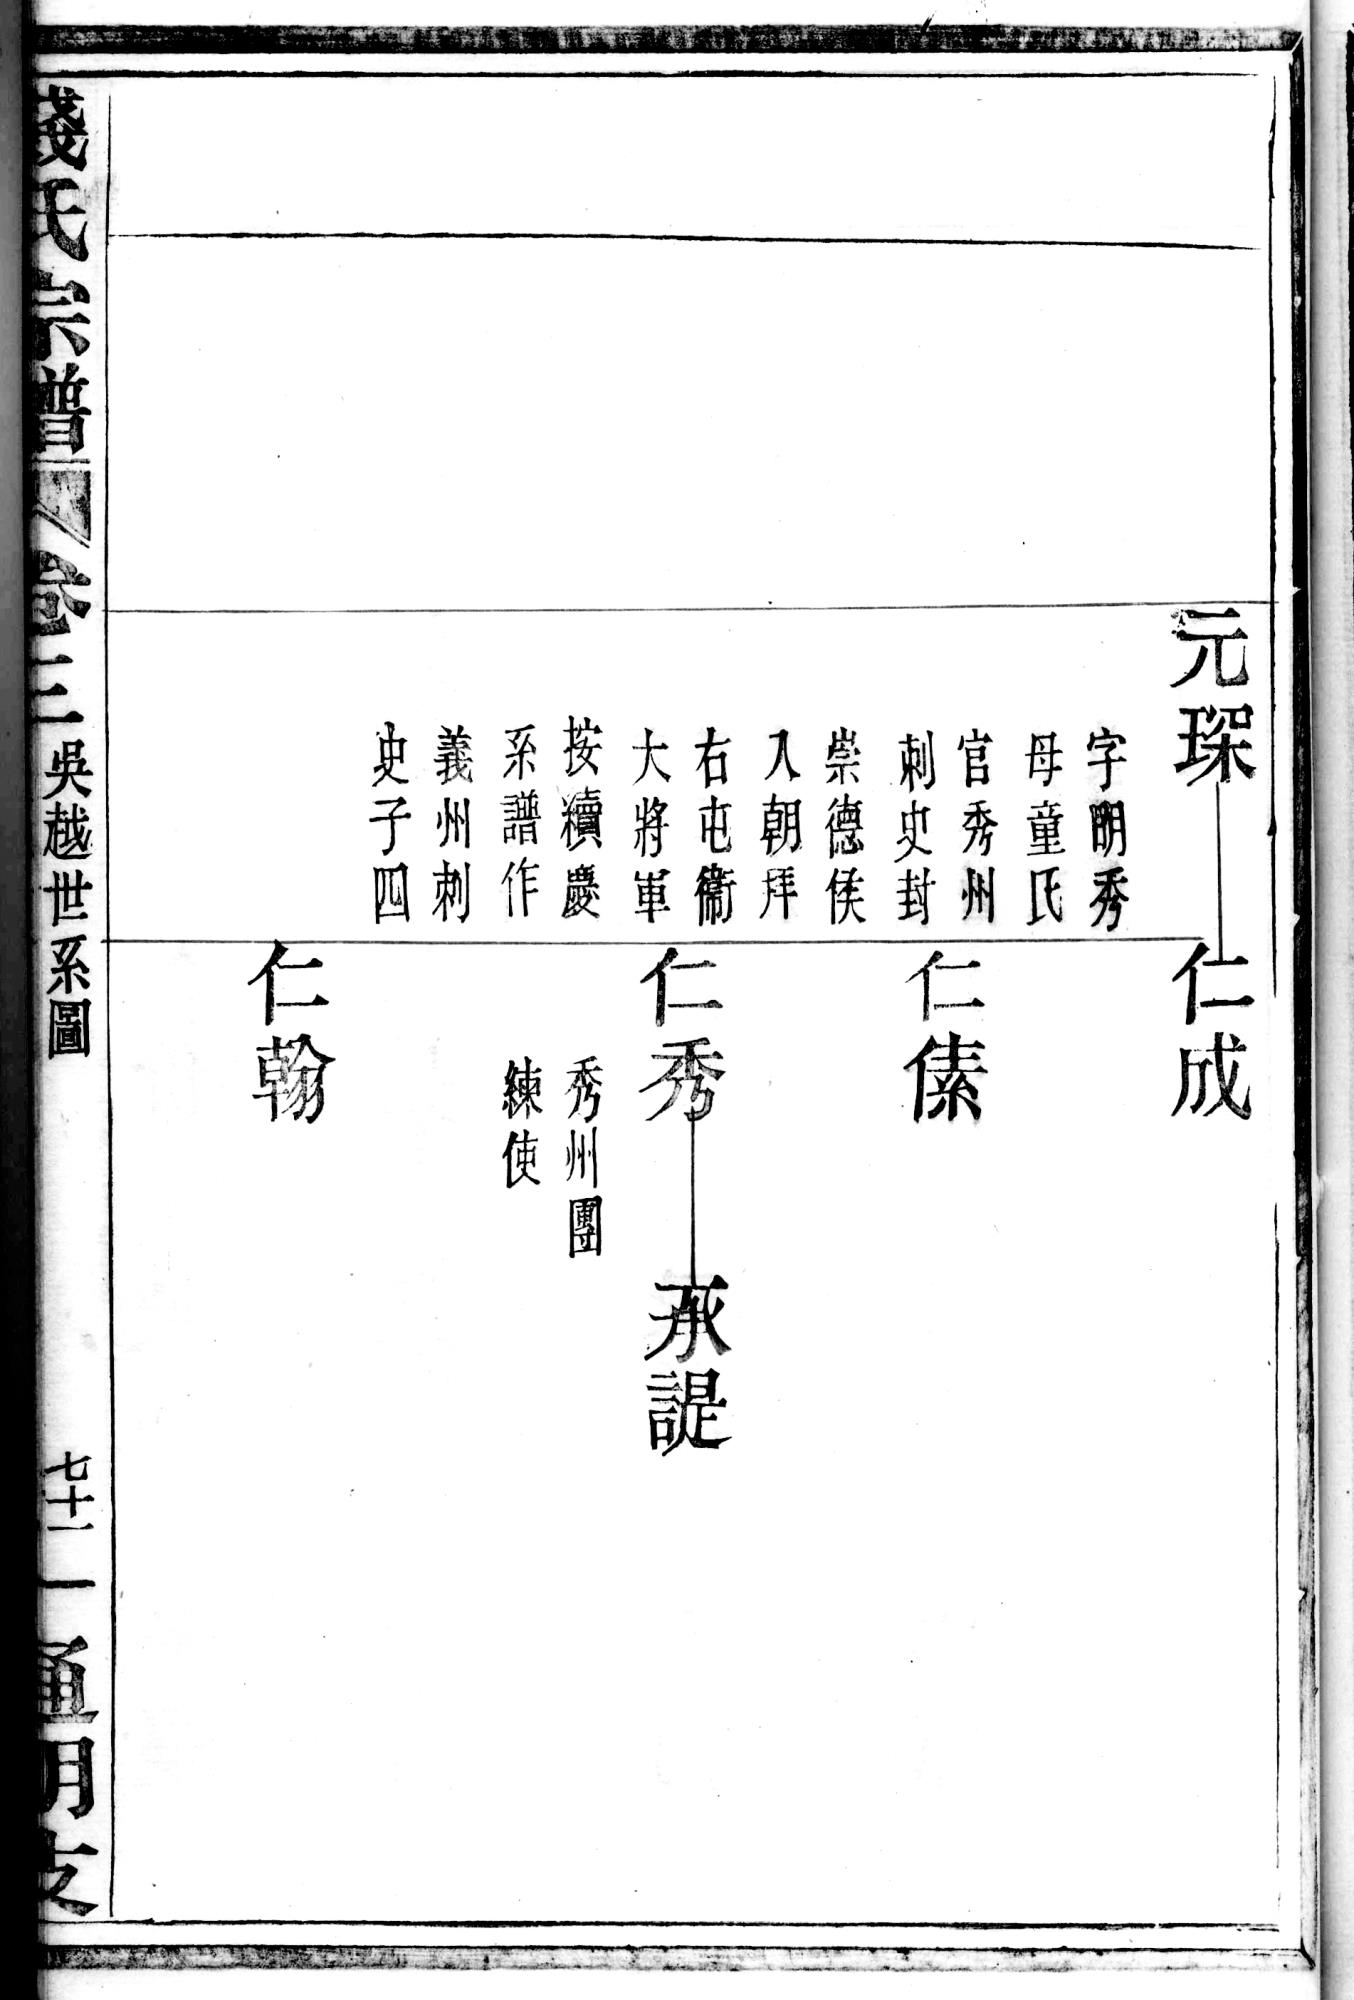 元琛
字明秀
母童氏
官秀州
刺史封
崇德侯
入朝拜
右屯衞
大將軍
按續慶
系譜作
義州刺
史子四
仁成
仁傃
仁秀
秀州團
練使
承諟
仁翰
錢氏宗譜
卷三
吳越世系圖
七十一
通明支